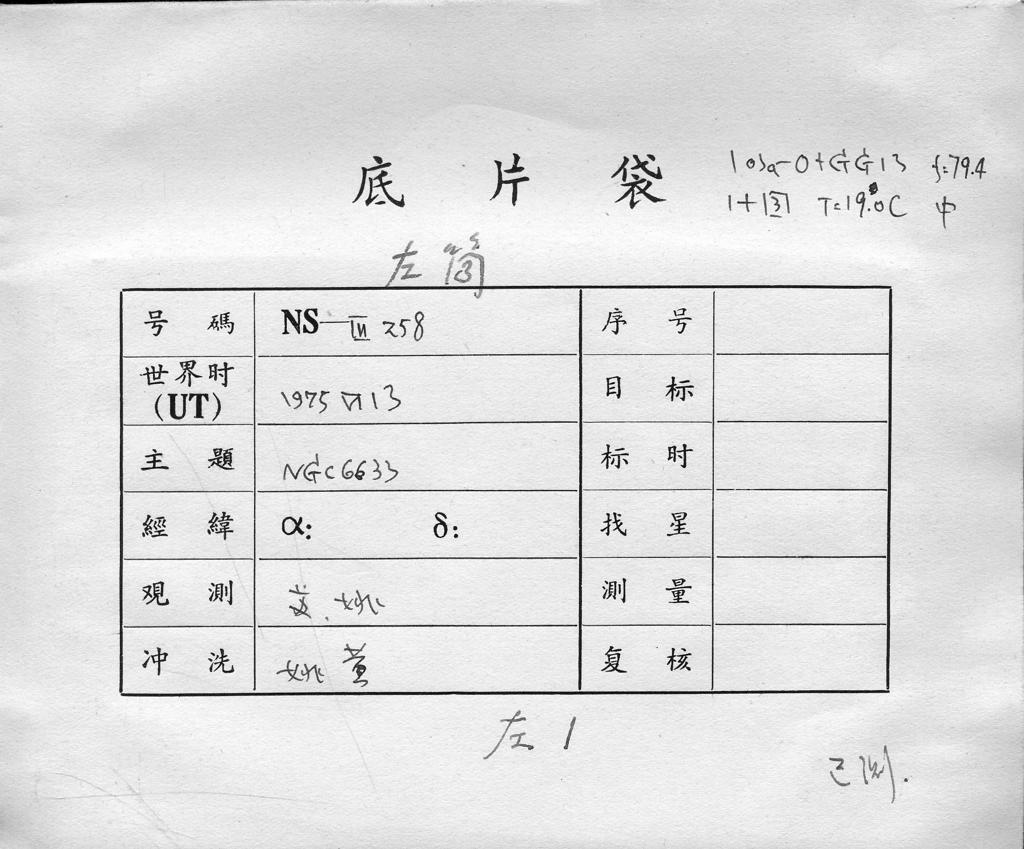 底片袋
103a-O+GG13 f=79.4
1+圆 T=19.0C 中
左筒
号碼 NS—Ⅲ 258 序号
世界时(UT) 1975 Ⅵ 13 目标
主題 NGC6633 标时
經緯 α: δ: 找星
观測 姚 測量
冲洗 姚黄 复核
左1
已测.